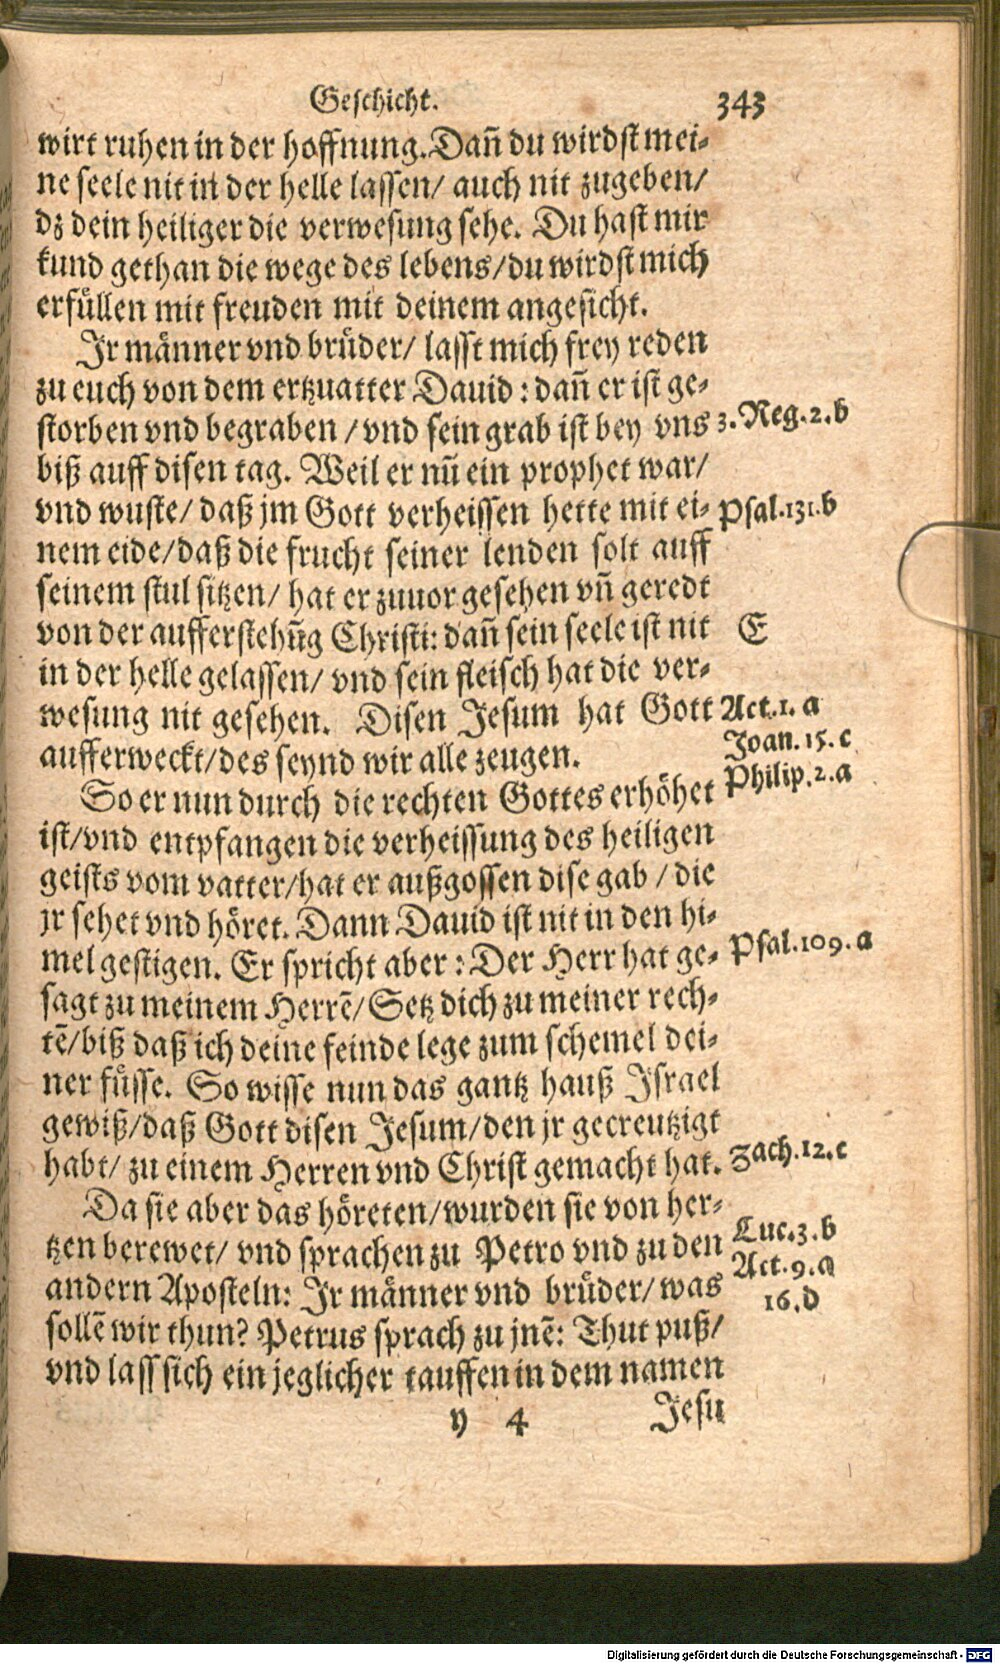 Geschicht. 343
wirt ruhen in der hoffnung. Dañ du wirdst mei-
ne seele nit in der helle lassen/ auch nit zugeben/
dz dein heiliger die verwesung sehe. Du hast mir
kund gethan die wege des lebens/du wirdst mich
erfüllen mit freuden mit deinem angesicht.
Ir männer vnd brüder/ lasst mich frey reden
zu euch von dem ertzuatter Dauid: dañ er ist ge-
storben vnd begraben / vnd sein grab ist bey vns 3. Reg. 2. b
biß auff disen tag. Weil er nū ein prophet war/
vnd wuste/ daß jm Gott verheissen hette mit ei- Psal. 131. b
nem eide/daß die frucht seiner lenden solt auff
seinem stul sitzen/ hat er zuuor gesehen vñ geredt
von der aufferstehūg Christi: dañ sein seele ist nit E
in der helle gelassen/ vnd sein fleisch hat die ver-
wesung nit gesehen. Disen Jesum hat Gott Act. 1. a
aufferweckt/des seynd wir alle zeugen. Joan. 15. c
So er nun durch die rechten Gottes erhöhet Philip. 2. a
ist/vnd entpfangen die verheissung des heiligen
geists vom vatter/hat er außgossen dise gab / die
jr sehet vnd höret. Dann Dauid ist nit in den hi-
mel gestigen. Er spricht aber: Der Herr hat ge- Psal. 109. a
sagt zu meinem Herrē/ Setz dich zu meiner rech-
tē/biß daß ich deine feinde lege zum schemel dei-
ner füsse. So wisse nun das gantz hauß Israel
gewiß/daß Gott disen Jesum/den jr gecreutzigt
habt/ zu einem Herren vnd Christ gemacht hat. Zach. 12. c
Da sie aber das höreten/wurden sie von her-
tzen berewet/ vnd sprachen zu Petro vnd zu den Luc. 3. b
andern Aposteln: Ir männer vnd brüder/ was Act. 9. a
sollē wir thun? Petrus sprach zu jnē: Thut puß/ 16. d
vnd lass sich ein jeglicher tauffen in dem namen
y 4 Jesu
Digitalisierung gefördert durch die Deutsche Forschungsgemeinschaft - DFG